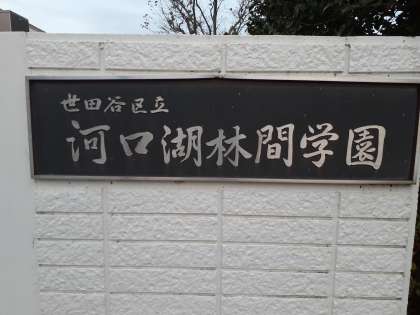 世田谷区立
河口湖林間学園